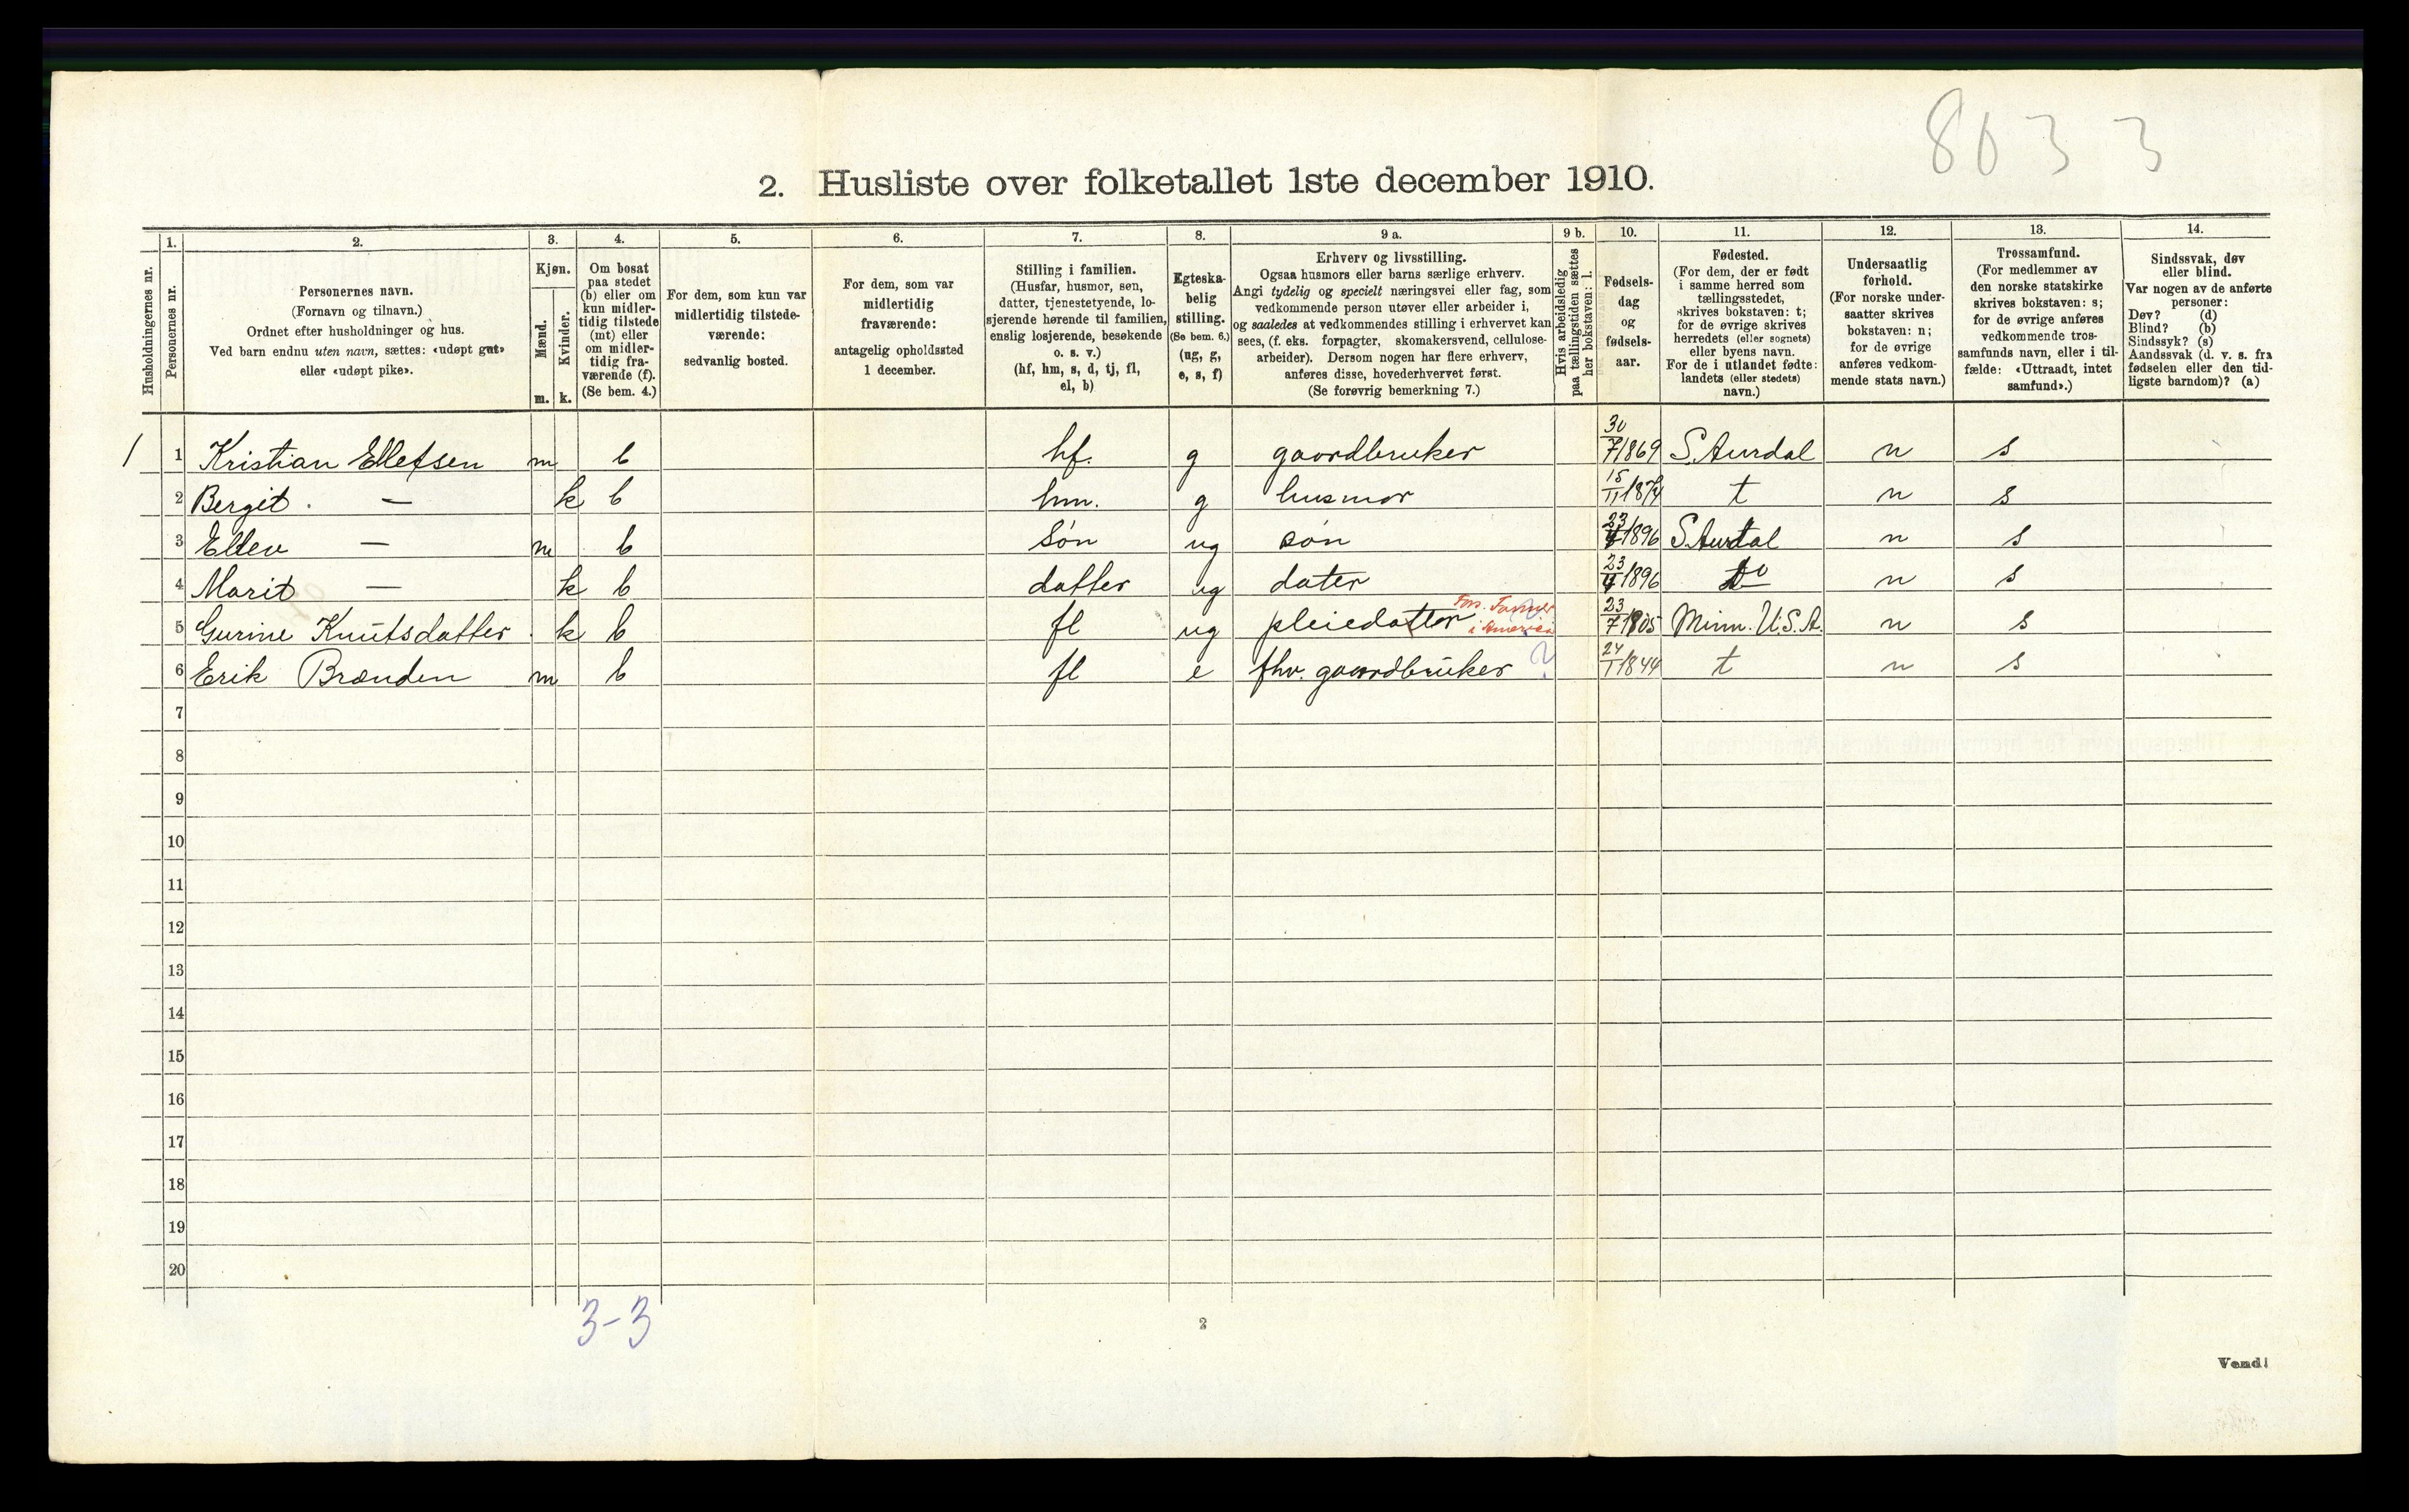 8033
2. Husliste over folketallet 1ste december 1910.
Husholdningernes nr.
1.
Personernes nr.
2.
Personernes navn.
(Fornavn og tilnavn.)
Ordnet efter husholdninger og hus.
Ved barn endnu uten navn, sættes: «udøpt gut»
eller «udøpt pike».
3.
Kjøn.
Mænd.
Kvinder.
m. k.
4.
Om bosat
paa stedet
(b) eller om
kun midler-
tidig tilstede
(mt) eller
om midler-
tidig fra-
værende (f).
(Se bem. 4.)
5.
For dem, som kun var
midlertidig tilstede-
værende:
sedvanlig bosted.
6.
For dem, som var
midlertidig
fraværende:
antagelig opholdssted
1 december.
7.
Stilling i familien.
(Husfar, husmor, søn,
datter, tjenestetyende, lo-
sjerende hørende til familien,
enslig losjerende, besøkende
o. s. v.)
(hf, hm, s, d, tj, fl,
el, b)
8.
Egteska-
belig
stilling.
(Se bem. 6.)
(ug, g,
e, s, f)
9 a.
Erhverv og livsstilling.
Ogsaa husmors eller barns særlige erhverv.
Angi tydelig og specielt næringsvei eller fag, som
vedkommende person utøver eller arbeider i,
og saaledes at vedkommendes stilling i erhvervet kan
sees, (f. eks. forpagter, skomakersvend, cellulose-
arbeider). Dersom nogen har flere erhverv,
anføres disse, hovederhvervet først.
(Se forøvrig bemerkning 7.)
9 b.
Hvis arbeidsledig
paa tællingstiden sættes
her bokstaven: l.
10.
Fødsels-
dag
og
fødsels-
aar.
11.
Fødested.
(For dem, der er født
i samme herred som
tællingsstedet,
skrives bokstaven: t;
for de øvrige skrives
herredets (eller sognets)
eller byens navn.
For de i utlandet fødte:
landets (eller stedets)
navn.)
12.
Undersaatlig
forhold.
(For norske under-
saatter skrives
bokstaven: n;
for de øvrige
anføres vedkom-
mende stats navn.)
13.
Trossamfund.
(For medlemmer av
den norske statskirke
skrives bokstaven: s;
for de øvrige anføres
vedkommende tros-
samfunds navn, eller i til-
fælde: «Uttraadt, intet
samfund».)
14.
Sindssvak, døv
eller blind.
Var nogen av de anførte
personer:
Døv? (d)
Blind? (b)
Sindssyk? (s)
Aandssvak (d. v. s. fra
fødselen eller den tid-
ligste barndom)? (a)
1 1 Kristian Ellefsen m b hf. g gaardbruker 30/7 1869 S. Aurdal n s
2 Bergit. — k b hm. g husmor 15/11 1874 t n s
3 Ellev — m b søn ug søn 23/4 1896 S. Aurdal n s
4 Marit — k b datter ug dater 23/4 1896 do n s
5 Gurine Knutsdatter k b fl ug pleiedatter Fors. Farmer i Amerika 23/7 1905 Minn. U.S.A. n s
6 Erik Brænden m b fl e fhv. gaardbruker ? 24/1 1844 t n s
7
8
9
10
11
12
13
14
15
16
17
18
19
20
3-3
2
Vend!